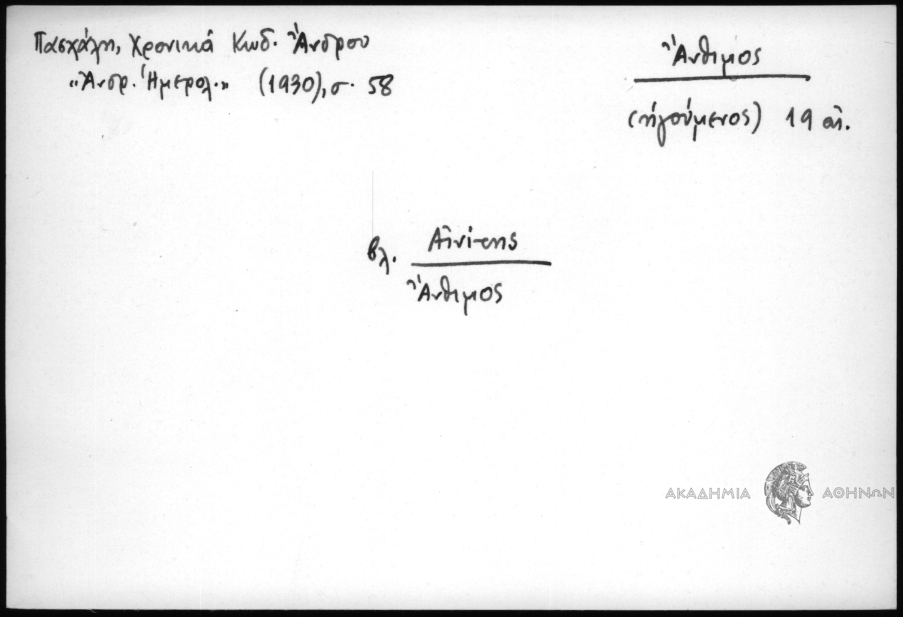 Πασχάλη, Χρονικά Κωδ. Ἄνδρου
«Ἀνδρ. Ἡμερολ.» (1930), σ. 58
Ἄνθιμος
(ἡγούμενος) 19 αἰ.
βλ. Αἰνίτης
Ἄνθιμος
ΑΚΑΔΗΜΙΑ ΑΘΗΝΩΝ